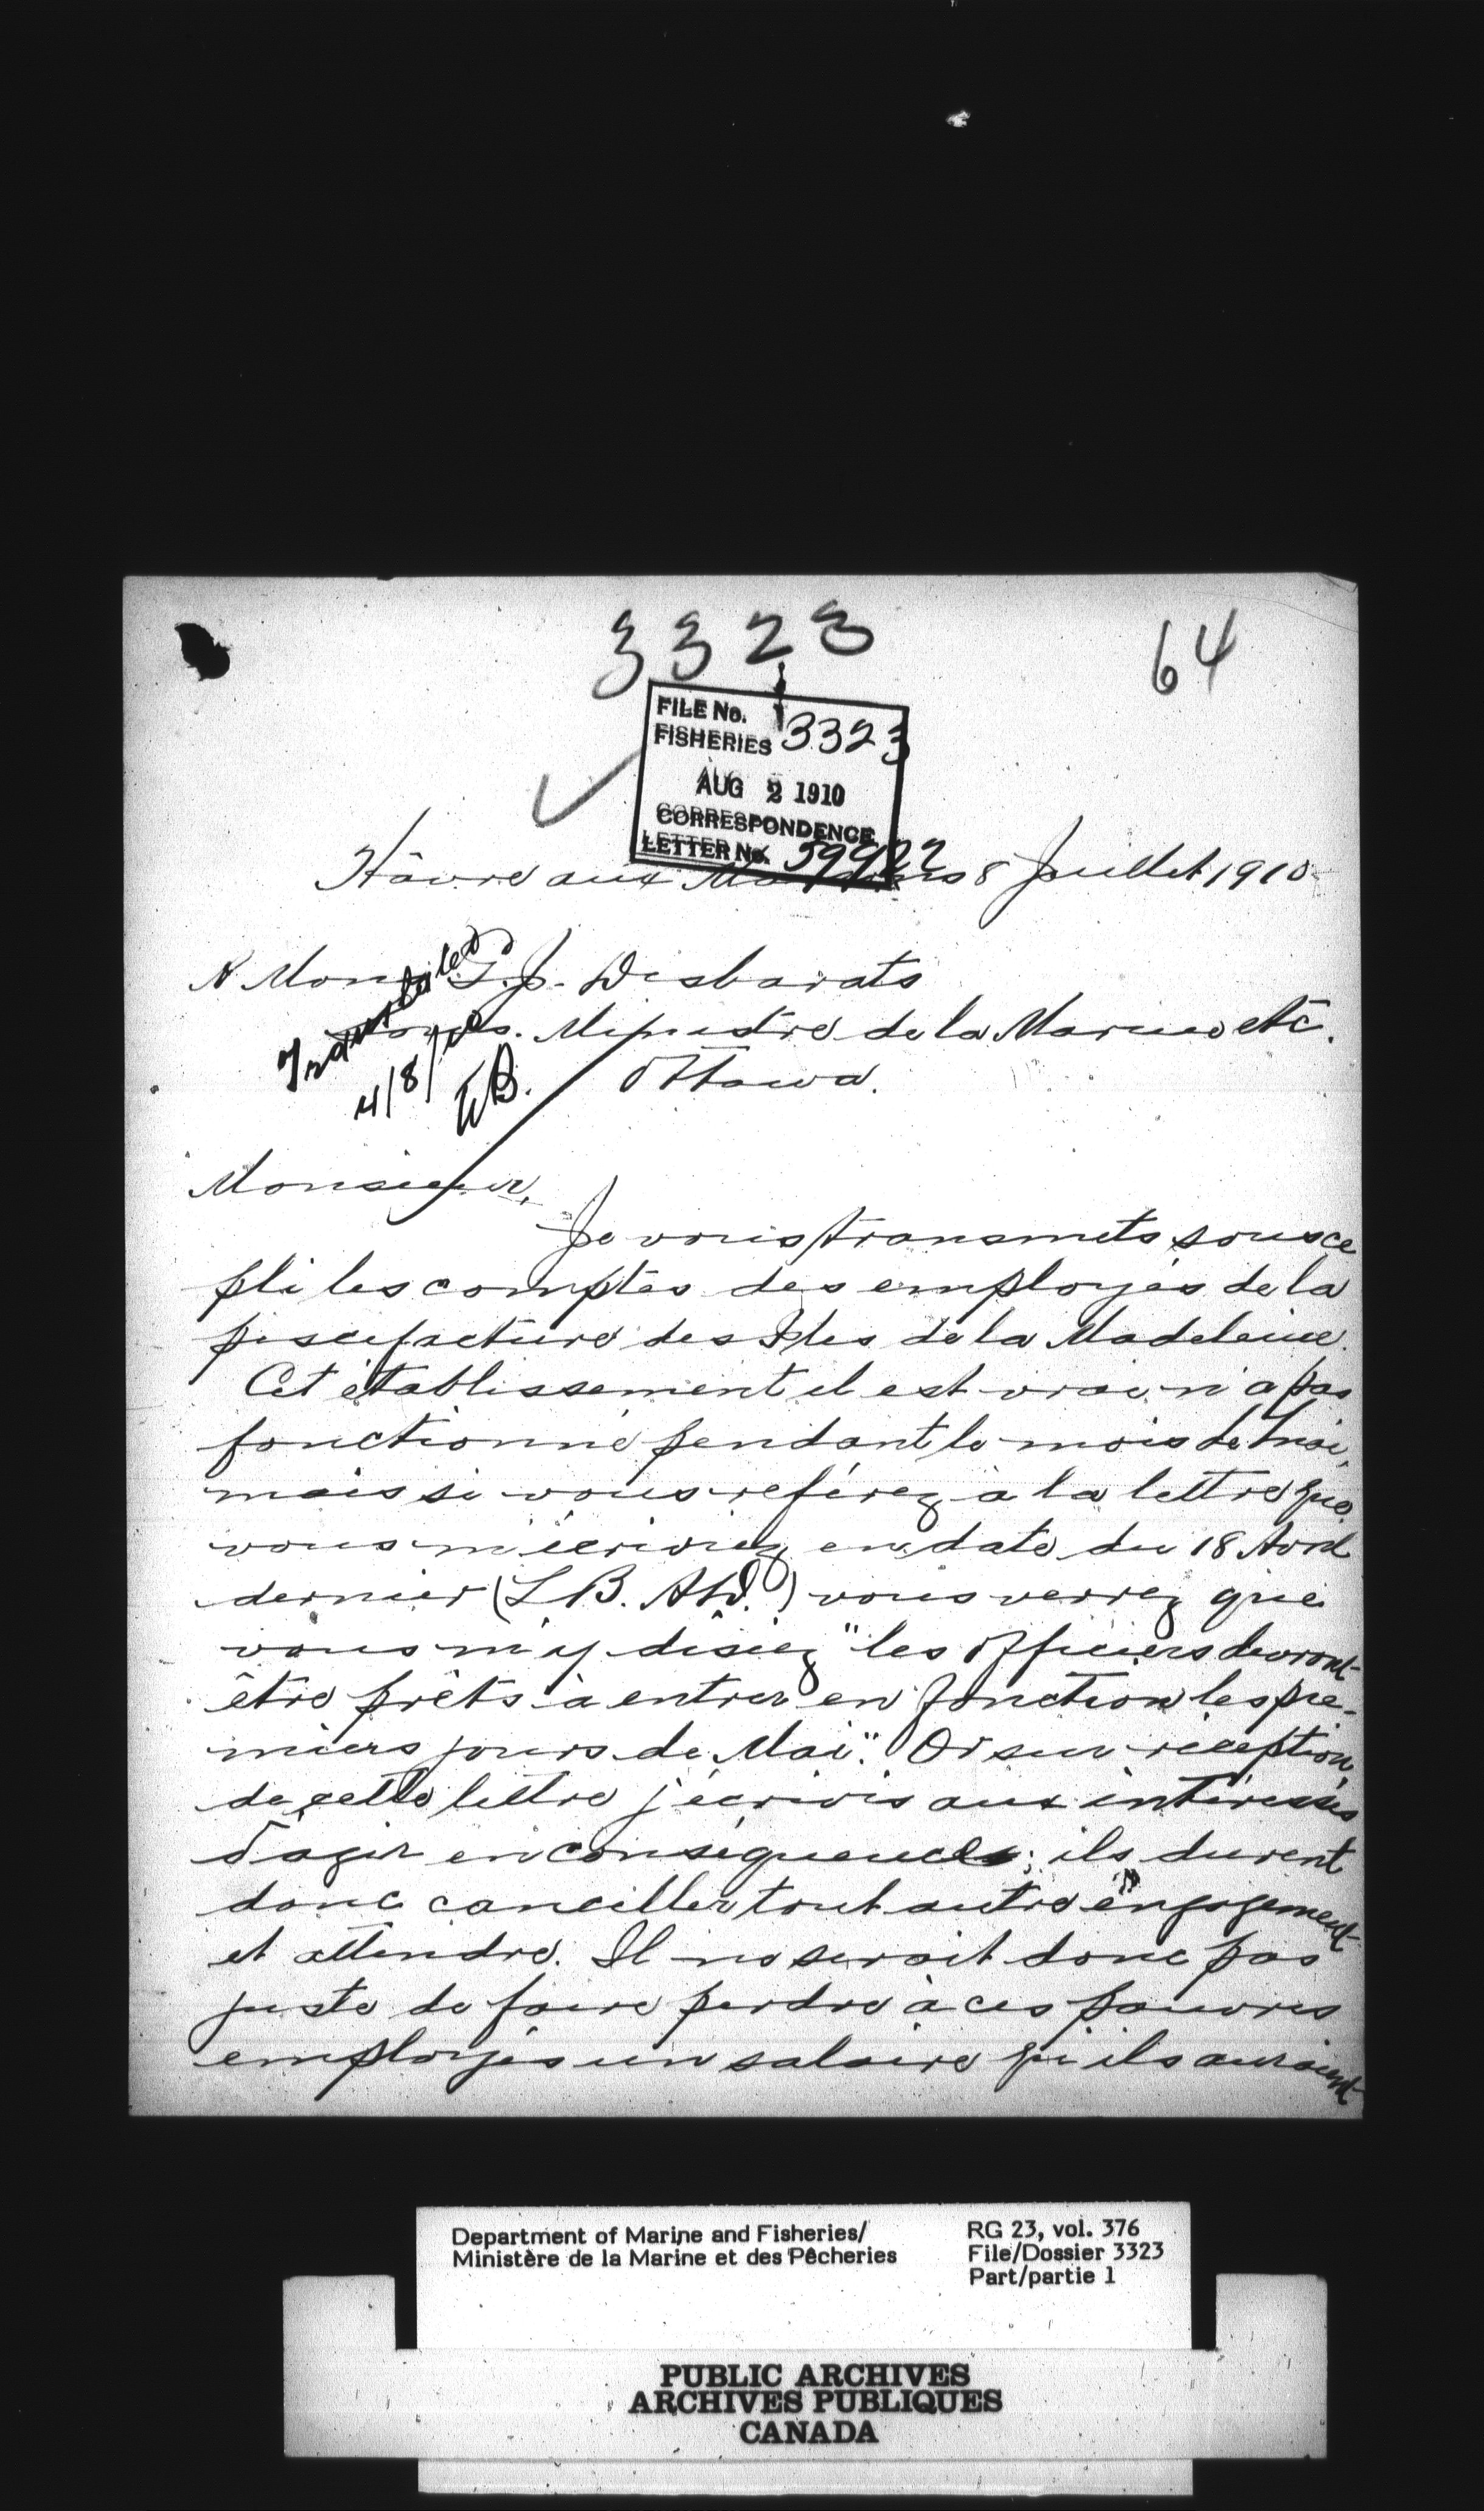 3323
64
FILE No. 3323
FISHERIES
AUG 2 1910
CORRESPONDENCE
LETTER No.
Hâvre aux 8 Juillet 1910
A Mons G.J. Desbarats
Ministre de la Marine etc.
Ottawa.
Translated
4/8/10
Monsieur,
Je vous transmets sous ce
pli les comptes des employés de la
piscifacture des Iles de la Madeleine.
Cet établissement il est vrai n'a pas
fonctionné pendant le mois de Mai,
mais si vous referez à la lettre que
vous m'écriviez en date du 18 Avril
dernier (L.B. A.W.) vous verrez que
vous m'y disiez "les Officiers devront
être prêts à entrer en fonction les pre-
miers jours de Mai". Or sur réception
de cette lettre j'écrivis aux intéressés
d'agir en conséquence; ils durent
donc canceller tout autre engagement
et attendre. Il ne serait donc pas
juste de faire perdre à ces pauvres
employés un salaire qu'ils auraient
Department of Marine and Fisheries/
Ministère de la Marine et des Pêcheries
RG 23, vol. 376
File/Dossier 3323
Part/partie 1
PUBLIC ARCHIVES
ARCHIVES PUBLIQUES
CANADA